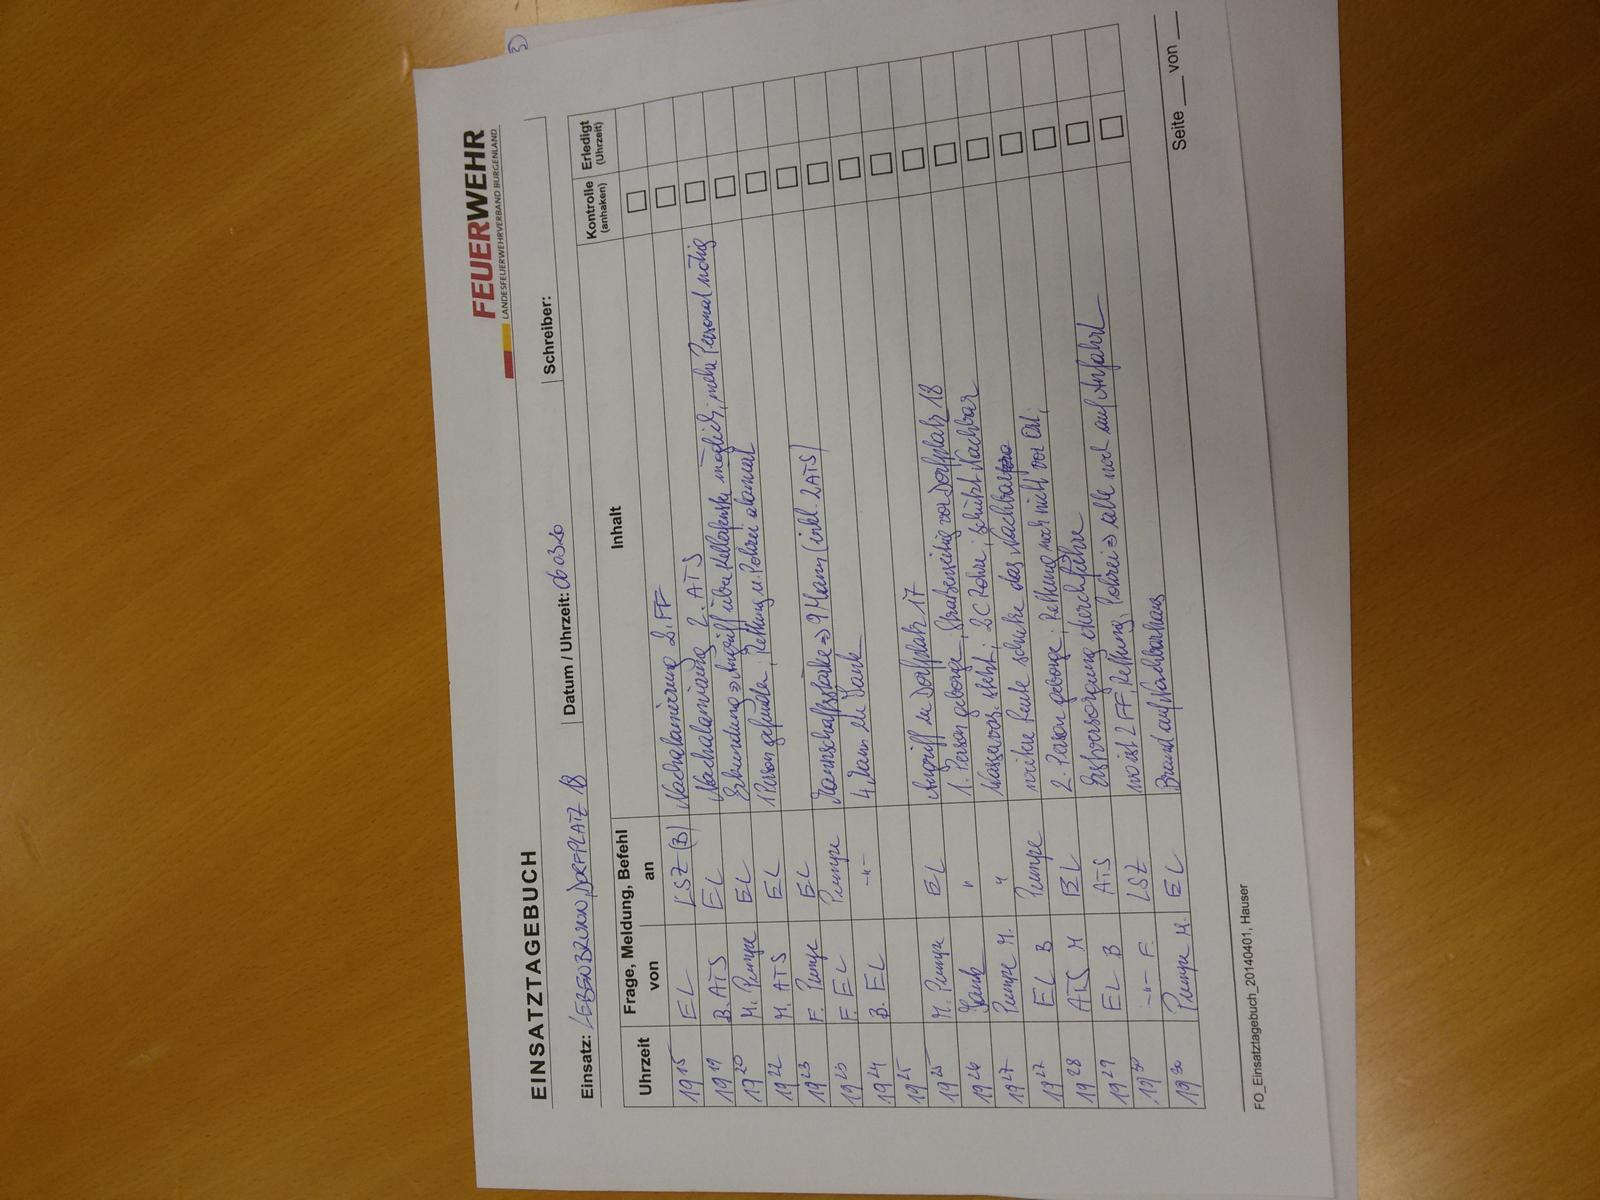 3)
FEUERWEHR
LANDESFEUERWEHRVERBAND BURGENLAND
EINSATZTAGEBUCH
Schreiber:
Einsatz: LEBENBRUNN, DORFPLATZ 18 Datum / Uhrzeit: 06 03 20
Uhrzeit Frage, Meldung, Befehl von an Inhalt Kontrolle (anhaken) Erledigt (Uhrzeit)
19 15 EL LSZ (B) Nachalamierung 2. FF
19 19 B. ATS EL Nachalamierung 2. ATS
19 20 M. Pumpe EL Erkundung => Angriff über Kellerfenster möglich, mehr Personal nötig
19 22 M. ATS EL 1 Person gefunden; Rettung u. Polizei alamiert
19 23 F. Pumpe EL Mannschaftsstärke => 9 Mann (inkl. 2 ATS)
19 23 F. EL Pumpe 4. Mann zu Tank
19 24 B. EL -"-
19 25
19 25 M. Pumpe EL Angriff zu Dorfplatz 17
19 26 Tank " 1. Person geborge, Straßenseitig vor Dorfplatz 18
19 27 Pumpe M. " Wasservers. steht; 2 C Rohre; schützt Nachbar
19 27 EL B Pumpe weitere Leute schicke das Nachbar
19 28 ATS M EL 2. Person geborge; Rettung noch nicht vor Ort;
19 29 EL B ATS Erstversorgung durchführe
19 30 -"- F. LSZ wo ist 2 FF, Rettung, Polizei => alle noch auf Anfahrt
19 30 Pumpe M. EL Brand auf Nachbarhaus
FO_Einsatztagebuch_20140401, Hauser
Seite ___ von ___